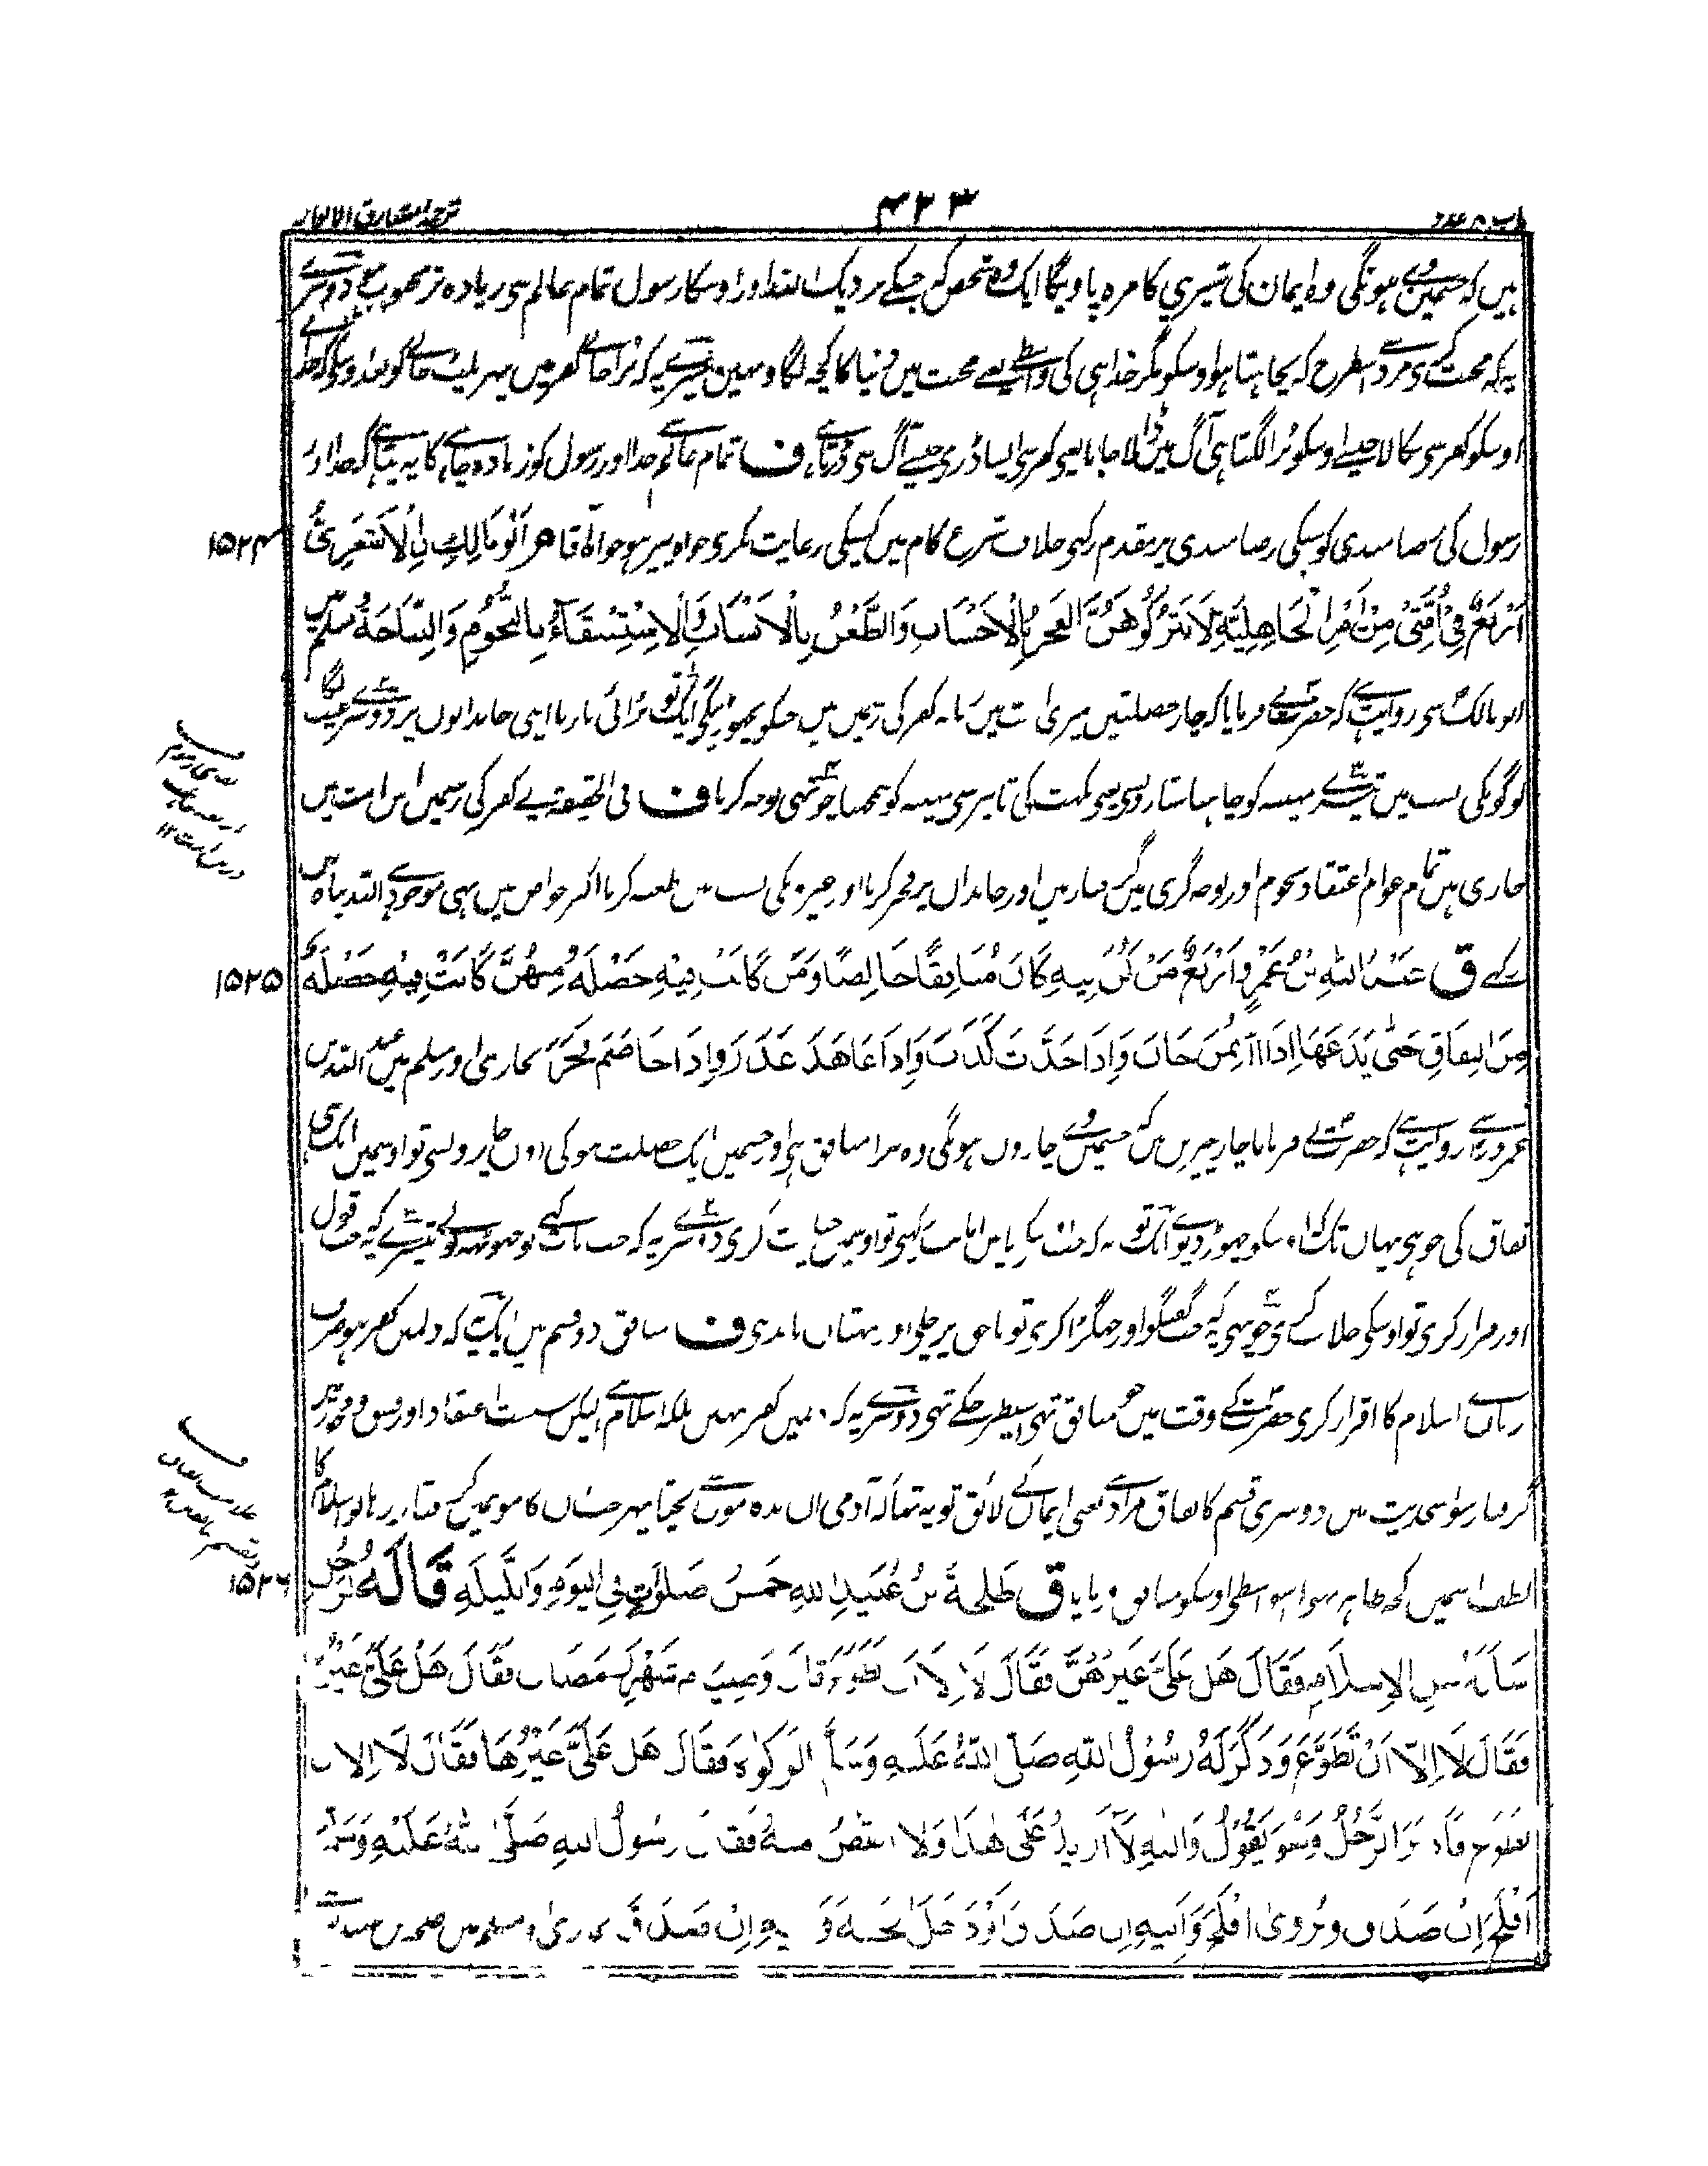 باب ۸ عدد
۴۲۳
ترجمہ مشارق الانوار
ہیں کہ جسمین وے ہونگی وہ ایمان کی شیرینی کا مزہ پاویگا ایک وہ شخص کہ جسکے نزدیک اللہ اور اوسکا رسول تمام عالم سی زیادہ تر محبوب ہے دوسرے
یہ کہ محبت کرے مرد اسطرح کہ نچاہتا ہو اوسکو مگر خدا ہی کی واسطے یعنے محبت میں دنیا کا کچھ لگاو نہین تیسرے یہ کہ برا جانے کفر میں پھر پلٹ جانیکو بعد اوسکی کہ خدا نے
اوسکو کفر سی نکالا جیسے اوسکو برا لگتا ہی آگ میں ڈالا جانا یعنی کفر سی ایسا ڈری جیسے آگ سی ڈرتا ہے ف تمام عالم سے خدا اور رسول کو زیادہ چاہنے کا یہ پتا ہے کہ خدا اور
رسول کی رضامندی کو سبکی رضامندی پر مقدم رکہی خلاف شرع کام میں کسیکی رعایت نکری خواہ پیر ہو خواہ آقا م اَبُو مَالِكِ نِ الْاَشْعَرِيُّ
۱۵۲۴
اَرْبَعٌ فِيْ اُمَّتِيْ مِنْ اَمْرِ الْجَاهِلِيَّةِ لَا يَتْرُكُوْهُنَّ الْفَخْرُ بِالْاَحْسَابِ وَالطَّعْنُ بِالْاَنْسَابِ وَالْاِسْتِسْقَاءُ بِالنُّجُوْمِ وَالنِّيَاحَةُ مسلم میں
ابو مالک سی روایت ہے کہ حضرت نے فرمایا کہ چار خصلتیں میری امت میں زمانہ کفر کی رسمیں ہیں جنکو نچھوڑینگی ایک تو بڑائی مارنا اپنی خاندانوں پر دوسرے عیب لگانا
لوگونکی نسب میں تیسرے مینہ کو چاہنا ستارونسی یعنی نکھت کی تاثیر سی مینہ کو سمجھنا چوتھی نوحہ کرنا ف فی الحقیقۃ یے کفر کی رسمیں اس امت میں
جاری ہیں تمام عوام اعتقاد نجوم اور نوحہ گری میں گرفتار ہیں اور خاندان پر فخر کرنا اور غیرونکی نسب میں طعنہ کرنا اکثر خواص میں بہی موجود ہے اللہ پناہ میں
رکہے ق عَبْدُ اللّٰهِ بْنُ عَمْرٍو اَرْبَعٌ مَنْ كُنَّ فِيْهِ كَانَ مُنَافِقًا خَالِصًا وَمَنْ كَانَتْ فِيْهِ خَصْلَةٌ مِنْهُنَّ كَانَتْ فِيْهِ خَصْلَةٌ
۱۵۲۵
مِنَ النِّفَاقِ حَتّٰى يَدَعَهَا اِذَا اؤْتُمِنَ خَانَ وَاِذَا حَدَّثَ كَذَبَ وَاِذَا عَاهَدَ غَدَرَ وَاِذَا خَاصَمَ فَجَرَ بخاری اور مسلم میں عبد اللہ بن
عمرو سے روایت ہے کہ حضرت نے فرمایا چار چیزیں ہیں کہ جسمیں وے چاروں ہونگی وہ نرا منافق ہی اور جسمیں ایک خصلت ہوگی اون چارونسی تو اوسمیں ایک نشانی
نفاق کی ہوئی یہاں تک کہ اوسکو چھوڑ دیوے ایک تو یہ کہ جب اسکے پاس امانت رکہیں تو اوسمیں خیانت کری دوسرے یہ کہ جب بات کہے تو جھوٹھ بولے تیسرے یہ کہ جب قول
اور قرار کری تو اوسکی خلاف کرے چوتھی یہ کہ جب گفتگو اور جھگڑا کری تو ناحق پر چلی اور بہتان باندہی ف منافق دو قسم ہیں ایک یہ کہ دلمیں کفر ہو صرف
زبان سے اسلام کا اقرار کری حضرت کے وقت میں جو منافق تہی اسیطرح کے تہی دوسرے یہ کہ دلمیں کفر نہیں بلکہ اسلام ہے لیکن سست اعتقاد اور فسق و فجور میں
گرفتار سو اس حدیث میں دوسری قسم کا نفاق مراد ہے یعنی ایمان کے لائق تو یہ تھا کہ آدمی ان بدخوؤں سے بچتا پہر جب ان کاموں میں گرفتار رہا تو اسلام کا
لطف اسمیں کچھ ظاہر نہوا اسواسطی اوسکو منافق فرمایا ق طَلْحَةُ بْنُ عُبَيْدِ اللّٰهِ خَمْسُ صَلَوٰتٍ فِي الْيَوْمِ وَاللَّيْلَةِ قَالَهُ لِرَجُلٍ
۱۵۲۶
سَاَلَهُ عَنِ الْاِسْلَامِ فَقَالَ هَلْ عَلَيَّ غَيْرُهُنَّ فَقَالَ لَا اِلَّا اَنْ تَطَوَّعَ قَالَ وَصِيَامُ شَهْرِ رَمَضَانَ فَقَالَ هَلْ عَلَيَّ غَيْرُهُ
فَقَالَ لَا اِلَّا اَنْ تَطَوَّعَ وَذَكَرَ لَهُ رَسُوْلُ اللّٰهِ صَلَّى اللّٰهُ عَلَيْهِ وَسَلَّمَ الزَّكٰوةَ فَقَالَ هَلْ عَلَيَّ غَيْرُهَا فَقَالَ لَا اِلَّا اَنْ
تَطَوَّعَ فَاَدْبَرَ الرَّجُلُ وَهُوَ يَقُوْلُ وَاللّٰهِ لَا اَزِيْدُ عَلٰى هٰذَا وَلَا اَنْقُصُ مِنْهُ فَقَالَ رَسُوْلُ اللّٰهِ صَلَّى اللّٰهُ عَلَيْهِ وَسَلَّمَ
اَفْلَحَ اِنْ صَدَقَ وَيُرْوٰى اَفْلَحَ وَاَبِيْهِ اِنْ صَدَقَ اَوْ دَخَلَ الْجَنَّةَ وَاَبِيْهِ اِنْ صَدَقَ بخاری و مسلم میں طلحہ بن عبید اللہ سے